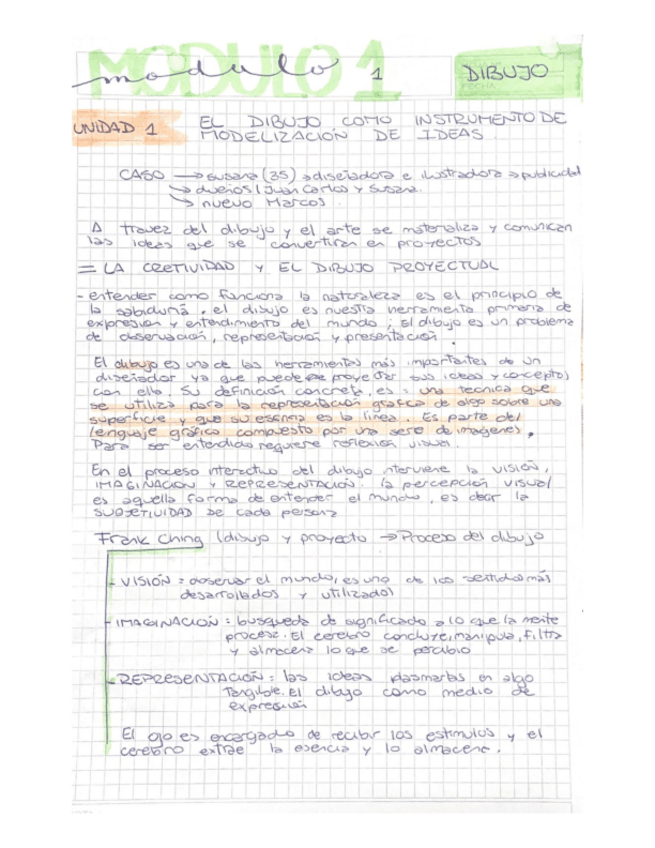 MODULO 1
modulo 1
DIBUJO
UNIDAD 1
EL DIBUJO COMO INSTRUMENTO DE
MODELIZACIÓN DE IDEAS.
CASO → susana (35) → diseñadora e ilustradora → publicidad
→ dueños / Juan Carlos y Susana.
→ nuevo Marcos
A travez del dibujo y el arte se materializa y comunican
las ideas que se convertiran en proyectos
= LA CRETIVIDAD Y EL DIBUJO PROYECTUAL
- entender como funciona la naturaleza es el principio de
la sabiduria, el dibujo es nuestra herramienta primaria de
expresion y entendimiento del mundo, El dibujo es un problema
de observación, representacion y presentación.
El dibujo es una de las herramientas más importantes de un
diseñador ya que puede proyectar sus ideas y conceptos
con ello. Su definición concreta, es: una tecnica que
se utiliza para la representación grafica de algo sobre una
superficie y que su esencia es la linea. Es parte del
lenguaje gráfico compuesto por una serie de imagenes.
Para ser entendido requiere reflexion visual.
En el proceso interactivo del dibujo interviene la VISIÓN,
IMAGINACION Y REPRESENTACION. la percepción visual
es aquella forma de entender el mundo, es decir la
SUBJETIVIDAD DE cada persona
Frank Ching (dibujo y proyecto → Proceso del dibujo
- VISIÓN = observar el mundo, es uno de los sentidos más
desarrollados y utilizados
- IMAGINACION: busqueda de significado a lo que la mente
procesa. El cerebro concluye, manipula, filtra
y almacena lo que se percibio
- REPRESENTACIÓN = las ideas plasmarlas en algo
Tangible. El dibujo como medio de
expresión
El ojo es encargado de recibir los estimulos y el
cerebro extrae la esencia y lo almacena.